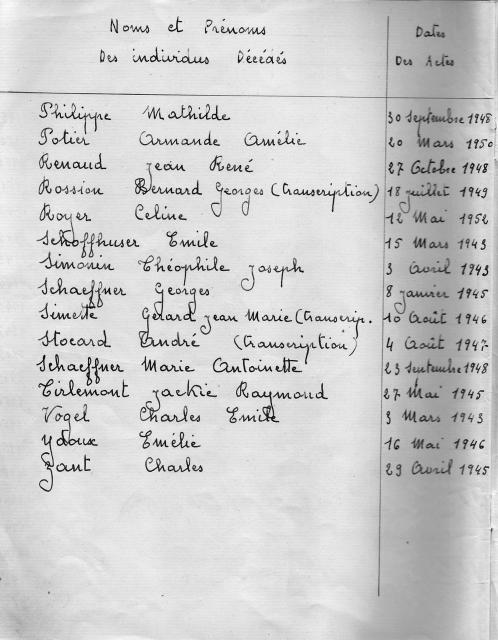 Noms et Prénoms Dates
Des individus Décédés Des Actes
Philippe Mathilde 30 Septembre 1948
Potier Armande Amélie 20 Mars 1950
Renaud Jean René 27 Octobre 1948
Rossion Bernard Georges (transcription) 18 juillet 1949
Royer Celine 12 Mai 1952
Schoffhuser Emile 15 Mars 1943
Simonin Théophile Joseph 3 Avril 1943
Schaeffner Georges 8 janvier 1945
Simette Gérard Jean Marie (transcrip. 10 Août 1946
Stocard André (transcription) 4 Août 1947
Schaeffner Marie Antoinette 23 Septembre 1948
Tirlemont Jackie Raymond 27 Mai 1945
Vogel Charles Emile 3 Mars 1943
Ydoux Emélie 16 Mai 1946
Zant Charles 29 Avril 1945